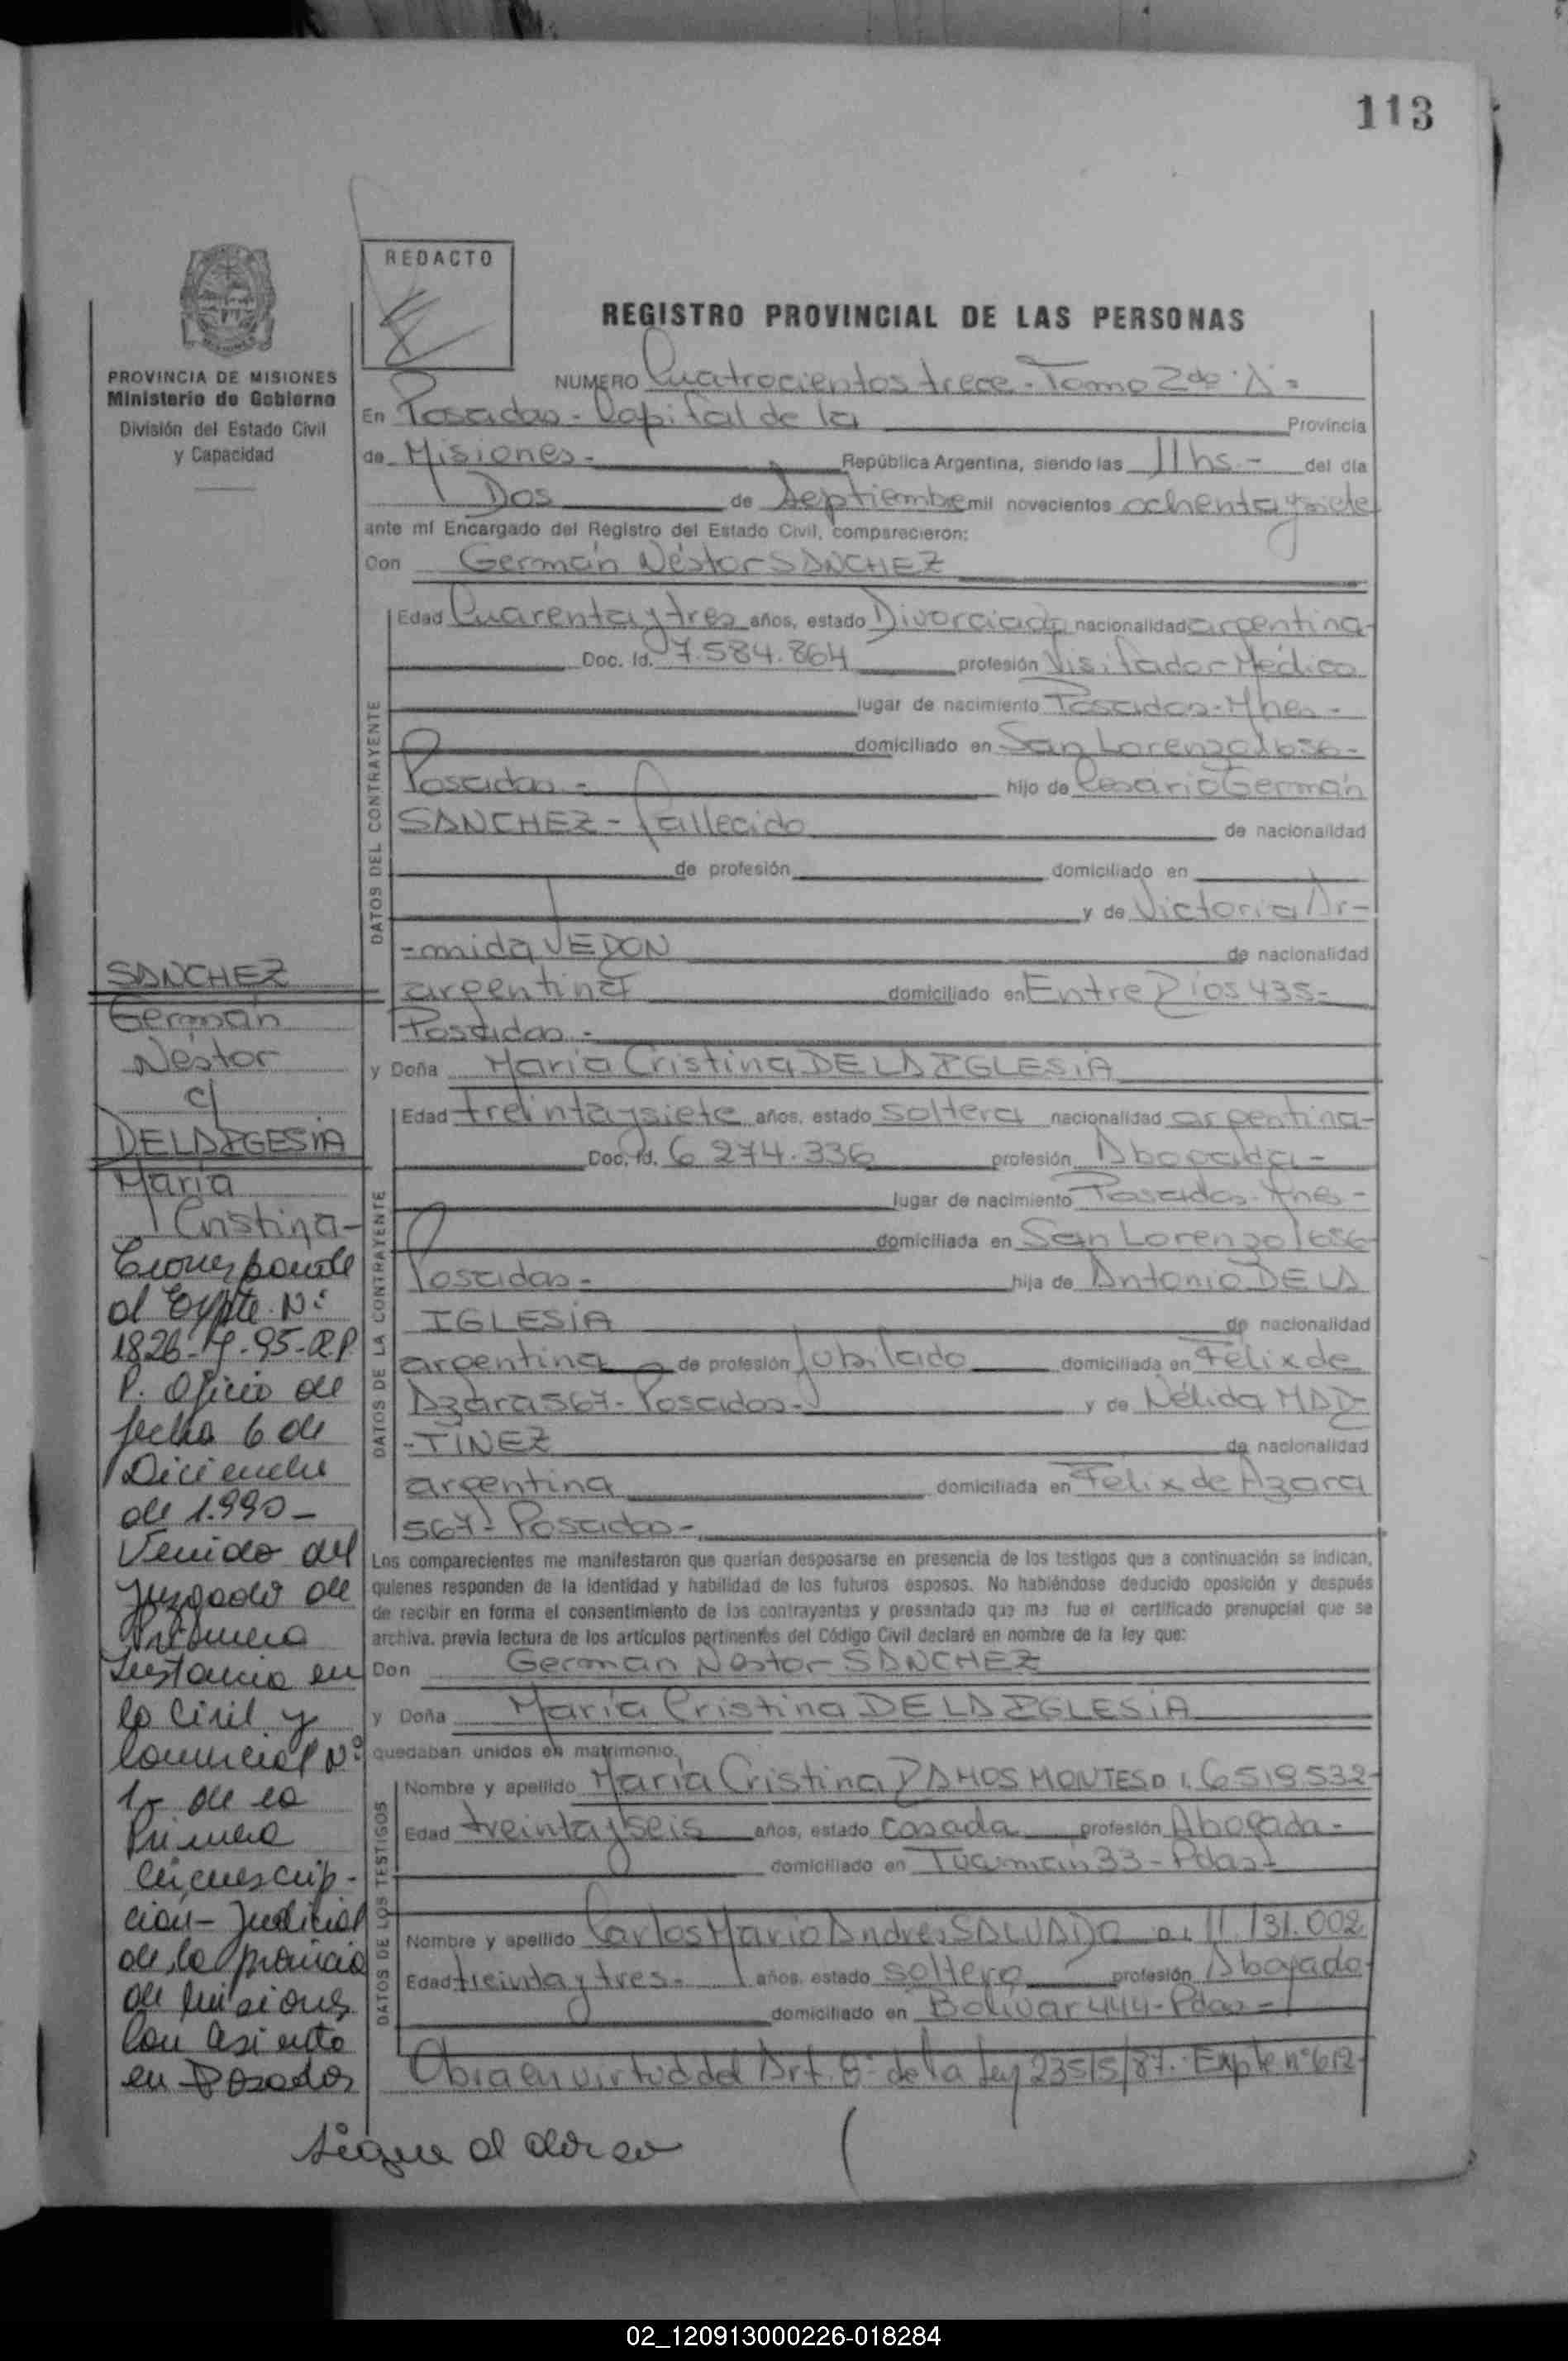 113
REDACTO
REGISTRO PROVINCIAL DE LAS PERSONAS
PROVINCIA DE MISIONES
Ministerio de Gobierno
División del Estado Civil
y Capacidad
NUMERO Cuatrocientos trece - Tomo 2do "A" =
En Posadas - Capital de la Provincia
de Misiones - República Argentina, siendo las 11 hs - del día
Dos de Septiembre mil novecientos ochenta y siete
ante mí Encargado del Registro del Estado Civil, comparecieron:
Don Germán Néstor SANCHEZ
DATOS DEL CONTRAYENTE
Edad Cuarenta y tres años, estado Divorciado nacionalidad argentina -
Doc. Id. 7.584.864 profesión Visitador Médico
lugar de nacimiento Posadas - Mnes -
domiciliado en San Lorenzo 1656 -
Posadas - hijo de Cesario Germán
SANCHEZ - fallecido de nacionalidad
de profesión domiciliado en
y de Victoria Ar-
-mida VEDON de nacionalidad
argentina domiciliado en Entre Rios 435 -
Posadas -
y Doña María Cristina DE LA IGLESIA
DATOS DE LA CONTRAYENTE
Edad treinta y siete años, estado soltera nacionalidad argentina -
Doc. Id. 6.274.336 profesión Abogada -
lugar de nacimiento Posadas - Mnes -
domiciliada en San Lorenzo 1656
Posadas - hija de Antonio DE LA
IGLESIA de nacionalidad
argentina de profesión Jubilado domiciliada en Félix de
Azara 567 - Posadas - y de Nélida MAR-
-TINEZ de nacionalidad
argentina domiciliada en Félix de Azara
567 - Posadas -
Los comparecientes me manifestaron que querían desposarse en presencia de los testigos que a continuación se indican,
quienes responden de la identidad y habilidad de los futuros esposos. No habiéndose deducido oposición y después
de recibir en forma el consentimiento de los contrayentes y presentado que me fue el certificado prenupcial que se
archiva, previa lectura de los artículos pertinentes del Código Civil declaré en nombre de la ley que:
Don German Nestor SANCHEZ
y Doña María Cristina DE LA IGLESIA
quedaban unidos en matrimonio.
DATOS DE LOS TESTIGOS
Nombre y apellido María Cristina RAMOS MONTESO D.I. 6.519.532 -
Edad treinta y seis años, estado casada profesión Abogada -
domiciliado en Tucumán 33 - Pdas -
Nombre y apellido Carlos Mario Andres D.I. 11.131.002
Edad treinta y tres - años, estado soltero profesión Abogado -
domiciliado en Bolivar 444 - Pdas -
Obra en virtud del Art. 8° de la Ley 23515/87. Expte n° 612 -
SANCHEZ
Germán
Néstor
c/
DE LA IGESIA
María
Cristina -
Corresponde
al Expte. N°
1826 - 95 - R.P.
P. Oficio de
fecha 6 de
Diciembre
de 1.990 -
Venido del
Juzgado de
Primera
Instancia en
lo Civil y
Comercial N°
1 - de la
Primera
Circunscrip-
cion - Judicial
de la provincia
de Misiones
Con asiento
en Posadas
Sigue al dorso
02_120913000226-018284